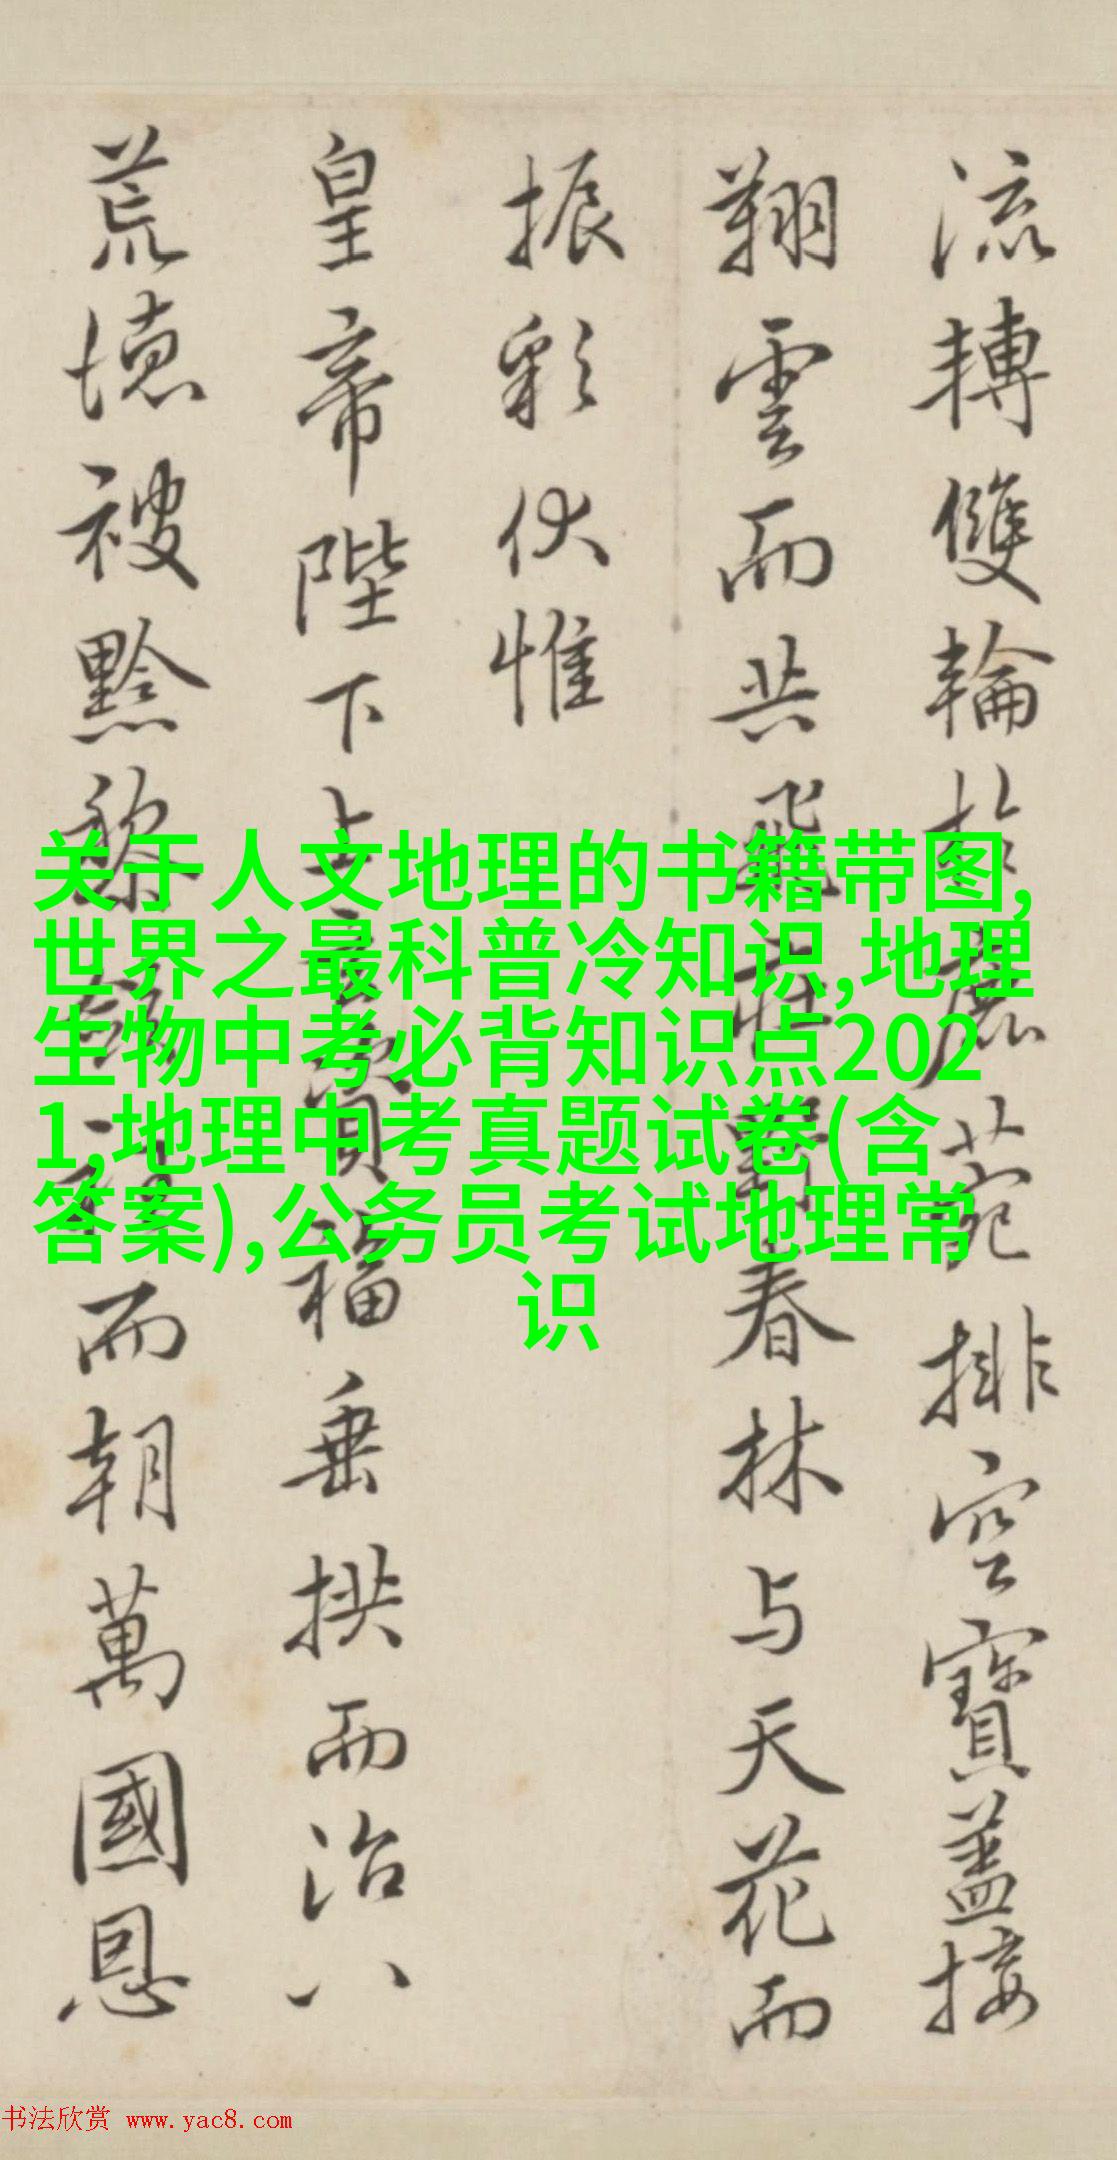 流轉雙輪於鹿苑排空寶蓋接
翔雲而共飛莊野春林与天花而
振彩伏惟
皇帝陛下上玄資福垂拱而治八
荒徳被黔黎斂衽而朝萬國恩
关于人文地理的书籍带图,
世界之最科普冷知识,地理
生物中考必背知识点202
1,地理中考真题试卷(含
答案),公务员考试地理常
识
书法欣赏 www.yac8.com